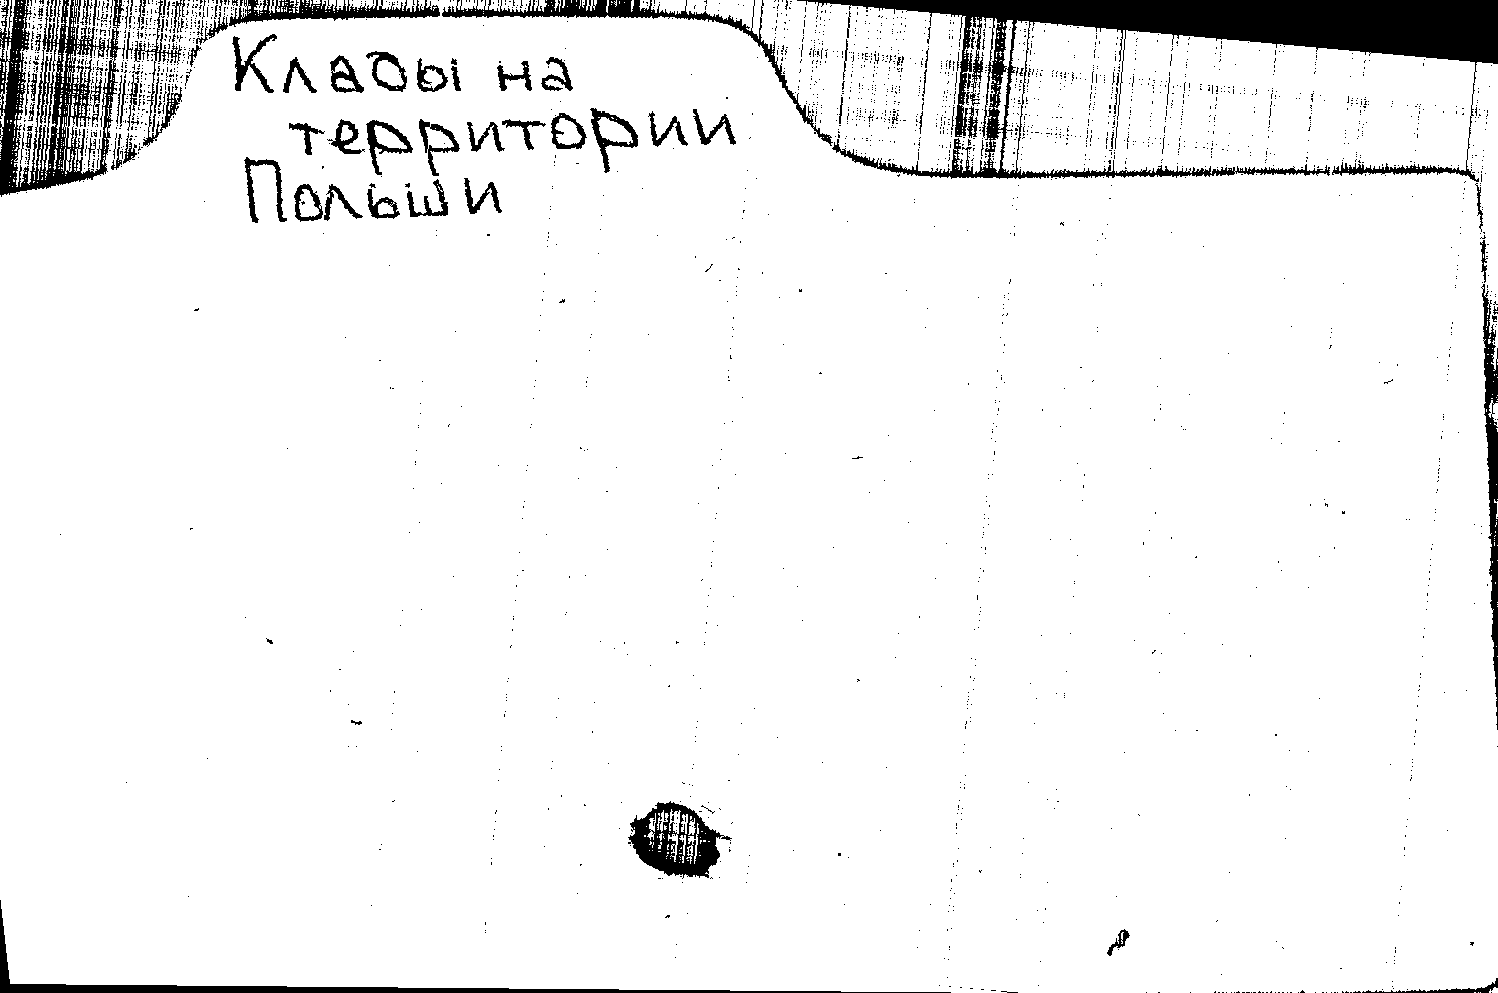 Клады на
территории
Польши